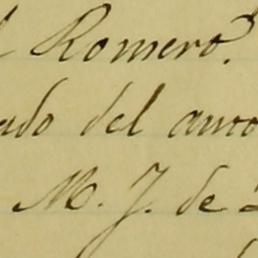 l Romero.
ado del auto
M. J. de